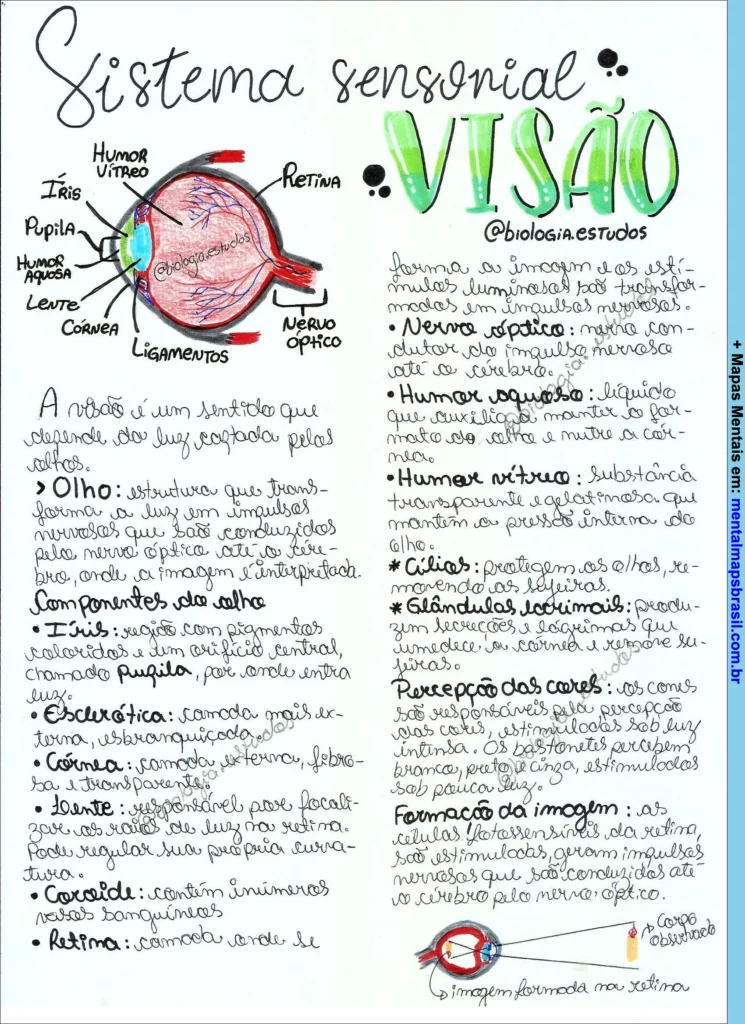 Sistema sensorial
VISÃO
@biologia.estudos
HUMOR
VÍTREO
RETINA
ÍRIS
PUPILA
HUMOR
AQUOSA
LENTE
CÓRNEA
LIGAMENTOS
NERVO
ÓPTICO
@biologia.estudos
A visão é um sentido que
depende da luz captada pelos
olhos.
> Olho: estrutura que trans-
forma a luz em impulsos
nervosos que são conduzidos
pelo nervo óptico até o cére-
bro, onde a imagem é interpretada.
Componentes do olho
• Íris: região com pigmentos
coloridos e um orifício central,
chamado Pupila, por onde entra
luz.
• Esclerótica: camada mais ex-
terna, esbranquiçada.
• Córnea: camada externa, fibro-
sa e transparente.
• Lente: responsável por focali-
zar os raios de luz na retina.
Pode regular sua própria curva-
tura.
• Coroide: contém inúmeros
vasos sanguíneos
• Retina: camada onde se
@biologia.estudos
forma a imagem e os estí-
mulos luminosos são transfor-
modos em impulsos nervosos.
• Nervo óptico: nervo con-
dutor do impulso nervoso
até o cérebro.
• Humor aquoso: líquido
que auxilia a manter o for-
mato do olho e nutre a cór-
nea.
• Humor vítreo: substância
transparente e gelatinosa que
mantém a pressão interna do
olho.
* Cílios: protegem os olhos, re-
movendo as sujeiras.
* Glândulas lacrimais: produ-
zem secreções e lágrimas que
umedece a córnea e remove su-
jeiras.
Percepção das cores: os cones
são responsáveis pela percepção
das cores, estimulados sob luz
intensa. Os bastonetes percebem
branco, preto e cinza, estimulados
sob pouca luz.
Formação da imagem: as
células fotossensíveis da retina,
são estimuladas, geram impulsos
nervosos que são conduzidos até
o cérebro pelo nervo óptico.
@biologia.estudos
@biologia.estudos
Corpo
observado
imagem formada na retina
+ Mapas Mentais em: mentalmapsbrasil.com.br